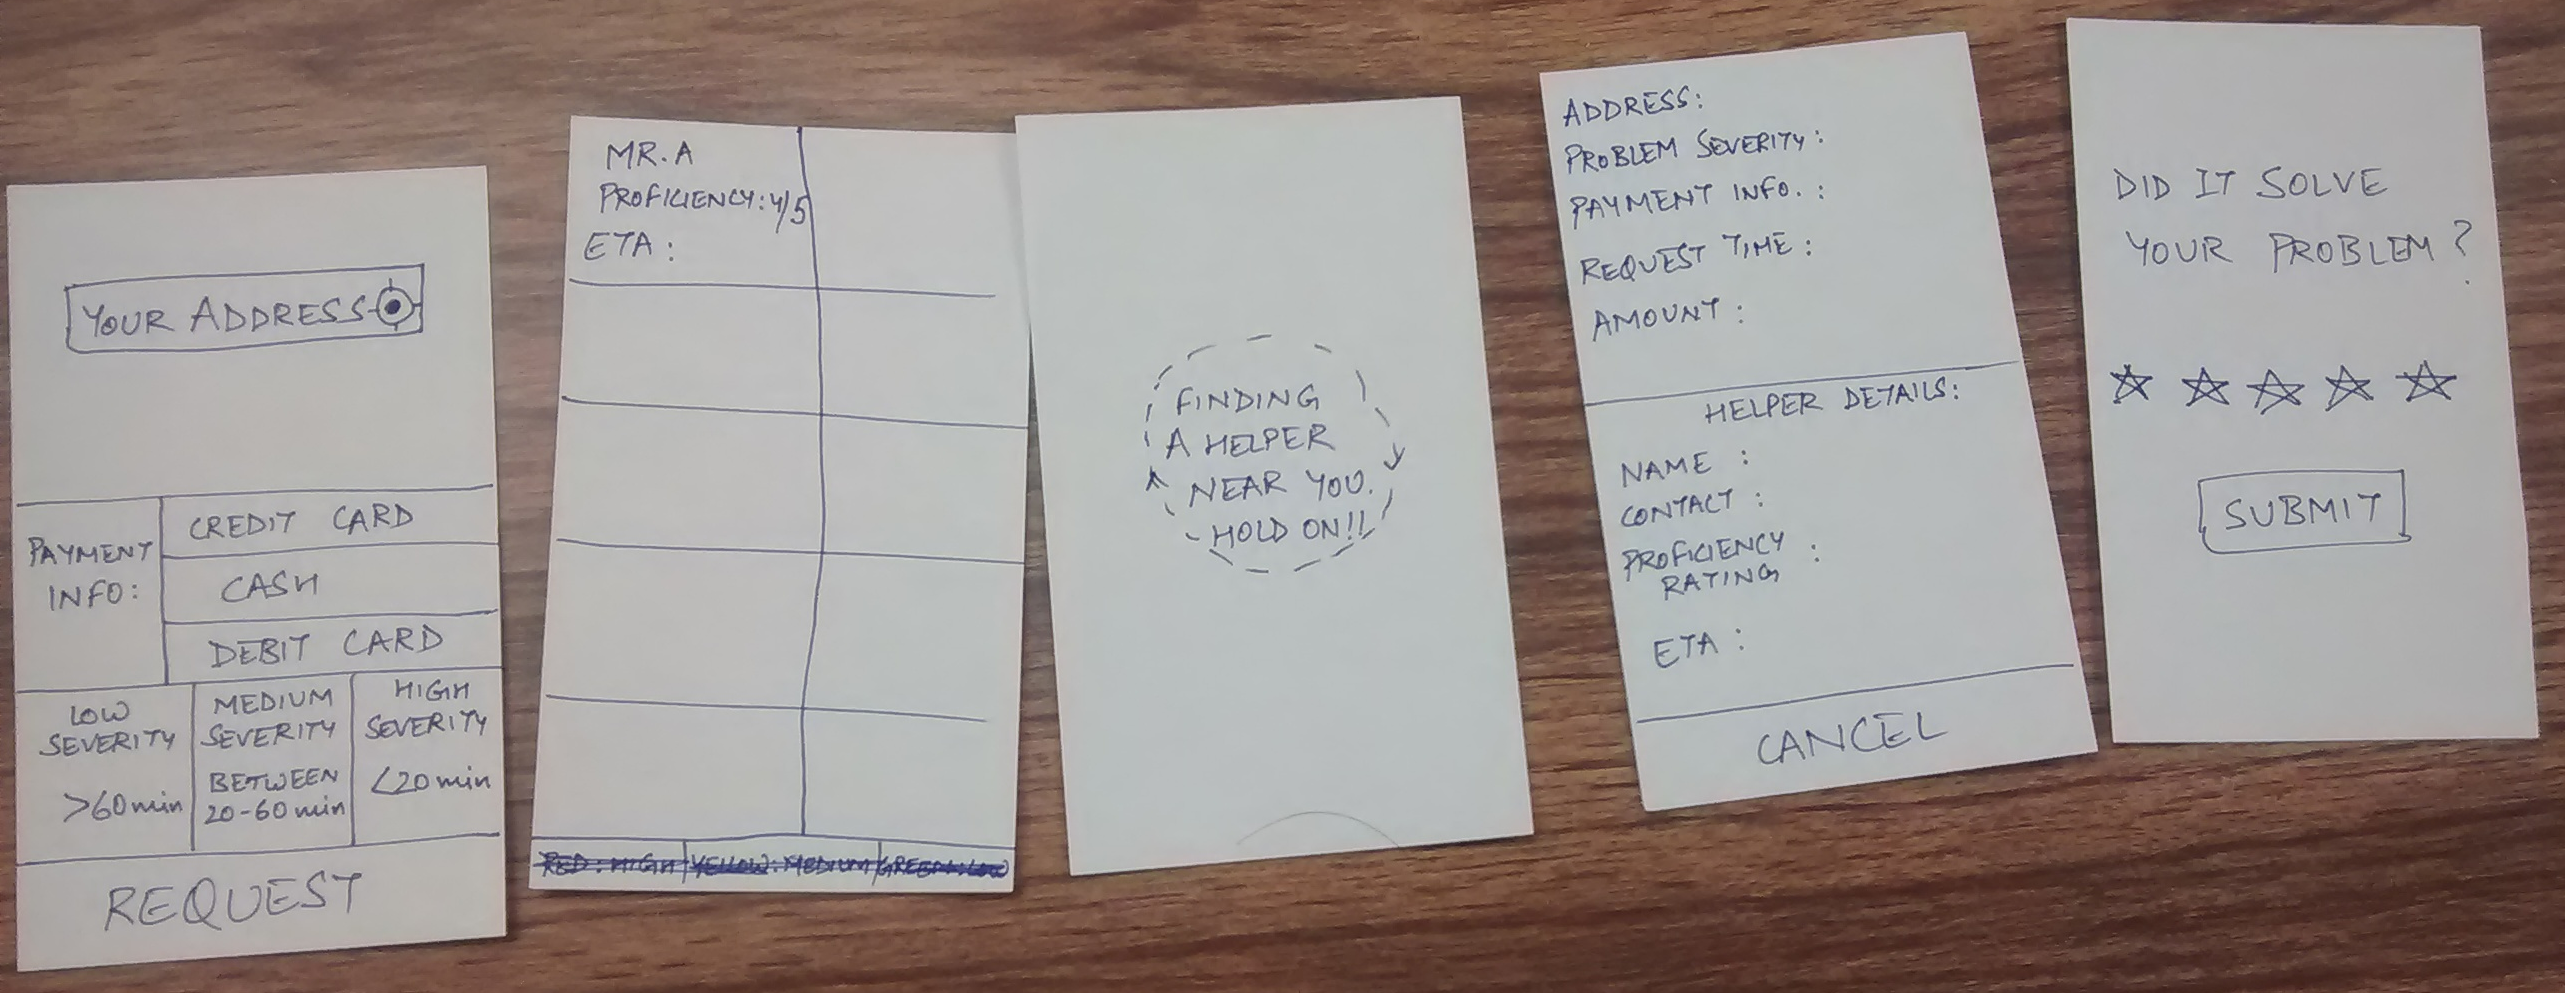 YOUR ADDRESS
PAYMENT
INFO:
CREDIT CARD
CASH
DEBIT CARD
LOW
SEVERITY
>60min
MEDIUM
SEVERITY
BETWEEN
20-60 min
HIGH
SEVERITY
<20min
REQUEST
MR. A
PROFICIENCY: 4/5
ETA :
RED : HIGH
YELLOW : MEDIUM
GREEN : LOW
FINDING
A HELPER
NEAR YOU.
HOLD ON!!
ADDRESS:
PROBLEM SEVERITY :
PAYMENT INFO. :
REQUEST TIME :
AMOUNT :
HELPER DETAILS:
NAME :
CONTACT :
PROFICIENCY :
RATING
ETA :
CANCEL
DID IT SOLVE
YOUR PROBLEM ?
SUBMIT